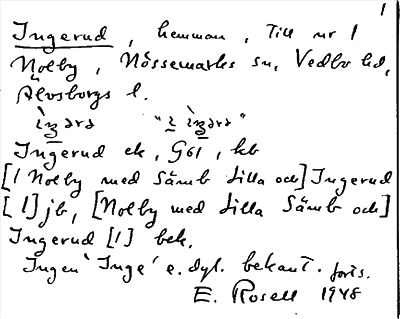 1
Ingerud, hemman, Till nr 1
Nolby, Nössemarks sn, Vedbo hd,
Älvsborgs l.
Ingerud ek, G61, kb
[1 Nolby med Sämb Lilla och] Ingerud
[1] jb, [Nolby med Lilla Sämb och]
Ingerud [1] bek.
Ingen 'Inge' e.dyl. bekant. forts.
E. Rosell 1948